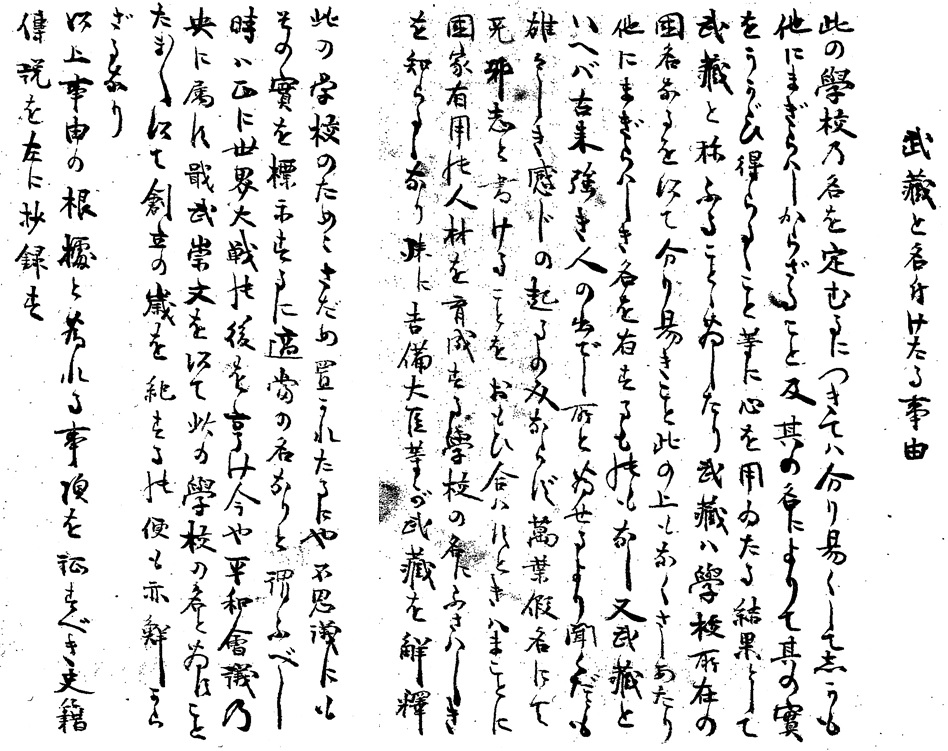 武藏と名付けたる事由
此の學校乃名を定むるにつきては分り易くして志かも
他にまぎらはしからざること及其の名によりて其の實
をうかゞひ得らるゝこと等に心を用ゐたる結果として
武藏と称ふることゝ為したり武藏は學校所在の
國名なるを以て分り易きこと此の上もなくさしあたり
他にまぎらはしき名を有するものもなし又武藏と
いへば古来強き人の出でし所と為せるより聞くだにも
雄々しき感じの起るのみならず萬葉假名にて
旡邪志と書けることをおもひ合はすときはまことに
國家有用の人材を育成する學校の名にふさはしき
を知らるゝなり殊に吉備大臣等が武藏を解釋
此の学校のためにさだめ置かれたるにや不思議にも
その實を標示するに適當の名なりと謂ふべし
時は正に世界大戦の後を享け今や平和會議乃
央に属す戢武崇文を以て此の學校の名と為すこと
たまゝゝ以て創立の歳を紀するの便も亦鮮しとせ
ざるなり
以上事由の根據と為れる事項を証すべき史籍
傳説を左に抄録す